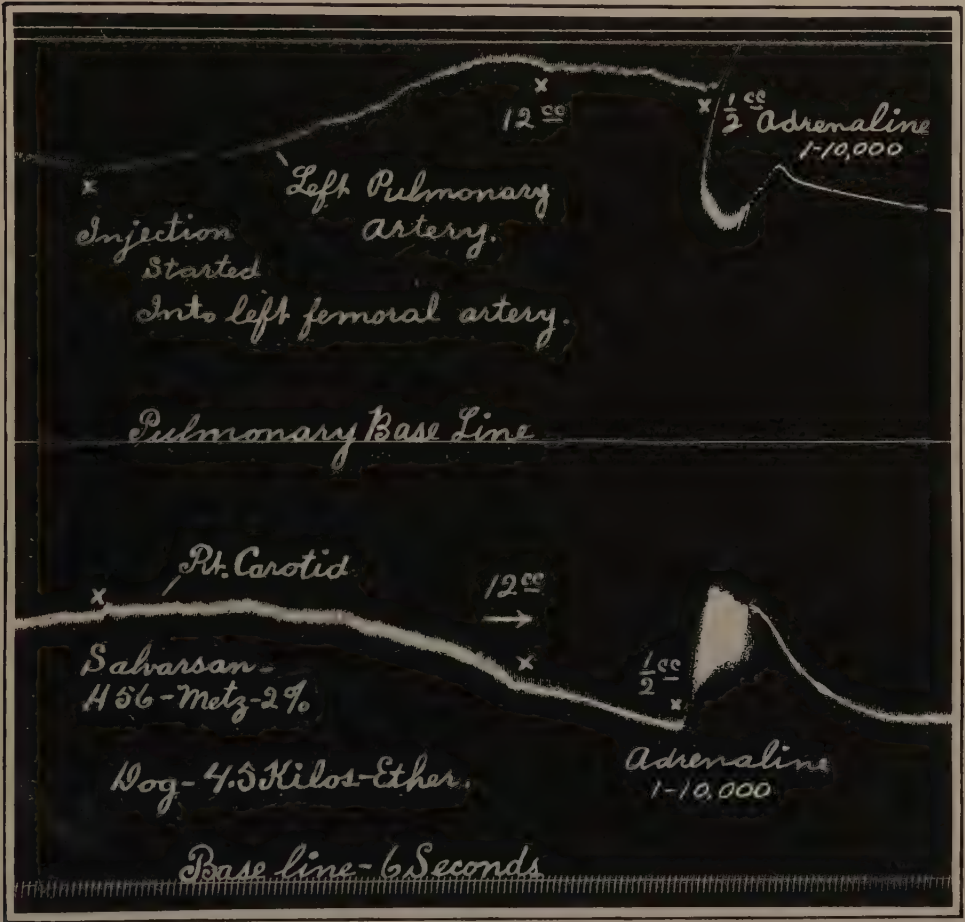 12 cc
½ cc Adrenaline
1-10,000
Left Pulmonary
Artery.
Injection
Started
Into left femoral artery.
Pulmonary Base Line
Rt. Carotid
12 cc
Salvarsan-
H 56-Metz-2%
½ cc
Adrenaline
1-10,000
Dog-4.5 Kilos-Ether.
Base line-6 Seconds